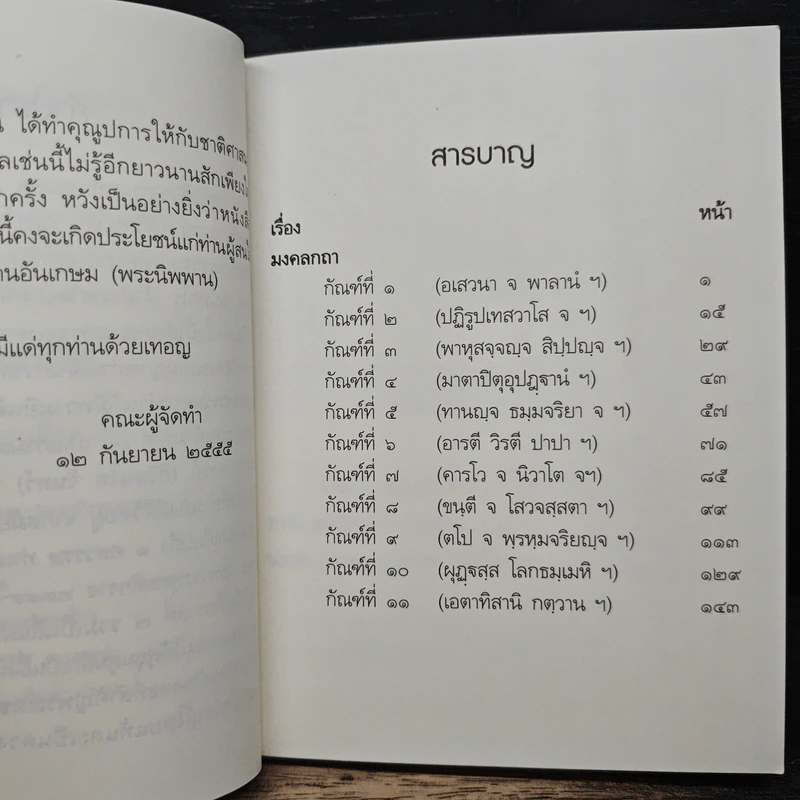 ได้ทำคุณูปการให้กับชาติศาสน
ลเช่นนี้ไม่รู้อีกยาวนานสักเพียงใ
กครั้ง หวังเป็นอย่างยิ่งว่าหนังสื
นี้คงจะเกิดประโยชน์แก่ท่านผู้สนใ
านอันเกษม (พระนิพพาน)
มีแด่ทุกท่านด้วยเทอญ
คณะผู้จัดทำ
๑๒ กันยายน ๒๕๕๕
สารบาญ
เรื่อง หน้า
มงคลกถา
กัณฑ์ที่ ๑ (อเสวนา จ พาลานํ ฯ) ๑
กัณฑ์ที่ ๒ (ปฏิรูปเทสวาโส จ ฯ) ๑๕
กัณฑ์ที่ ๓ (พาหุสจฺจญฺจ สิปฺปญฺจ ฯ) ๒๙
กัณฑ์ที่ ๔ (มาตาปิตุอุปฏฺฐานํ ฯ) ๔๓
กัณฑ์ที่ ๕ (ทานญฺจ ธมฺมจริยา จ ฯ) ๕๗
กัณฑ์ที่ ๖ (อารตี วิรตี ปาปา ฯ) ๗๑
กัณฑ์ที่ ๗ (คารโว จ นิวาโต จฯ) ๘๕
กัณฑ์ที่ ๘ (ขนฺตี จ โสวจสฺสตา ฯ) ๙๙
กัณฑ์ที่ ๙ (ตโป จ พฺรหฺมจริยญฺจ ฯ) ๑๑๓
กัณฑ์ที่ ๑๐ (ผุฏฺฐสฺส โลกธมฺเมหิ ฯ) ๑๒๙
กัณฑ์ที่ ๑๑ (เอตาทิสานิ กตฺวาน ฯ) ๑๔๓